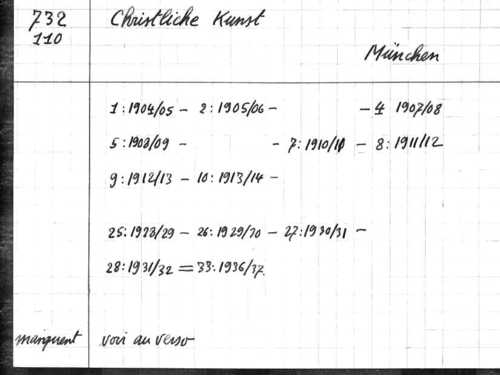 732 Christliche Kunst
110
München
1:1904/05 - 2:1905/06 - - 4 1907/08
5:1908/09 - - 7:1910/11 - 8:1911/12
9:1912/13 - 10:1913/14 -
25:1928/29 - 26:1929/30 - 27:1930/31 -
28:1931/32 = 33:1936/37.
manquent voir au verso